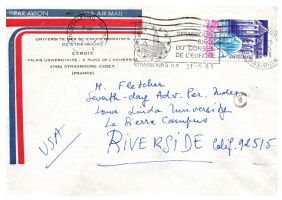 PAR AVION AIR MAIL
UNIVERSITÉ DES SCIENCES HUMAINES
DE STRASBOURG
CERDIC
PALAIS UNIVERSITAIRE - 9 PLACE DE L'UNIVERSITÉ
67084 STRASBOURG CEDEX
(FRANCE)
STRASBOURG
SIÈGE
DU CONSEIL
DE L'EUROPE
STRASBOURG R.P.
M. Fletcher
Seventh-day Adv. Per. Index
Loma Linda University
La Sierra Campus
RIVERSIDE Calif. 92515
USA